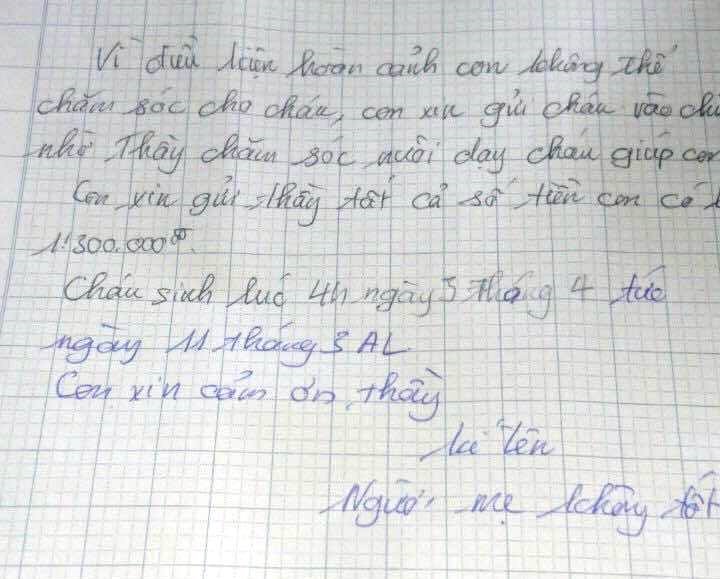 Vì điều kiện hoàn cảnh con không thể
chăm sóc cho cháu, con xin gửi cháu vào
nhờ Thầy chăm sóc nuôi dạy cháu giúp con
Con xin gửi thầy tất cả số tiền con có
1.300.000
Cháu sinh lúc 4h ngày 5 tháng 4 tức
ngày 11 tháng 3 AL
Con xin cảm ơn thầy
kí tên
Người mẹ không tốt